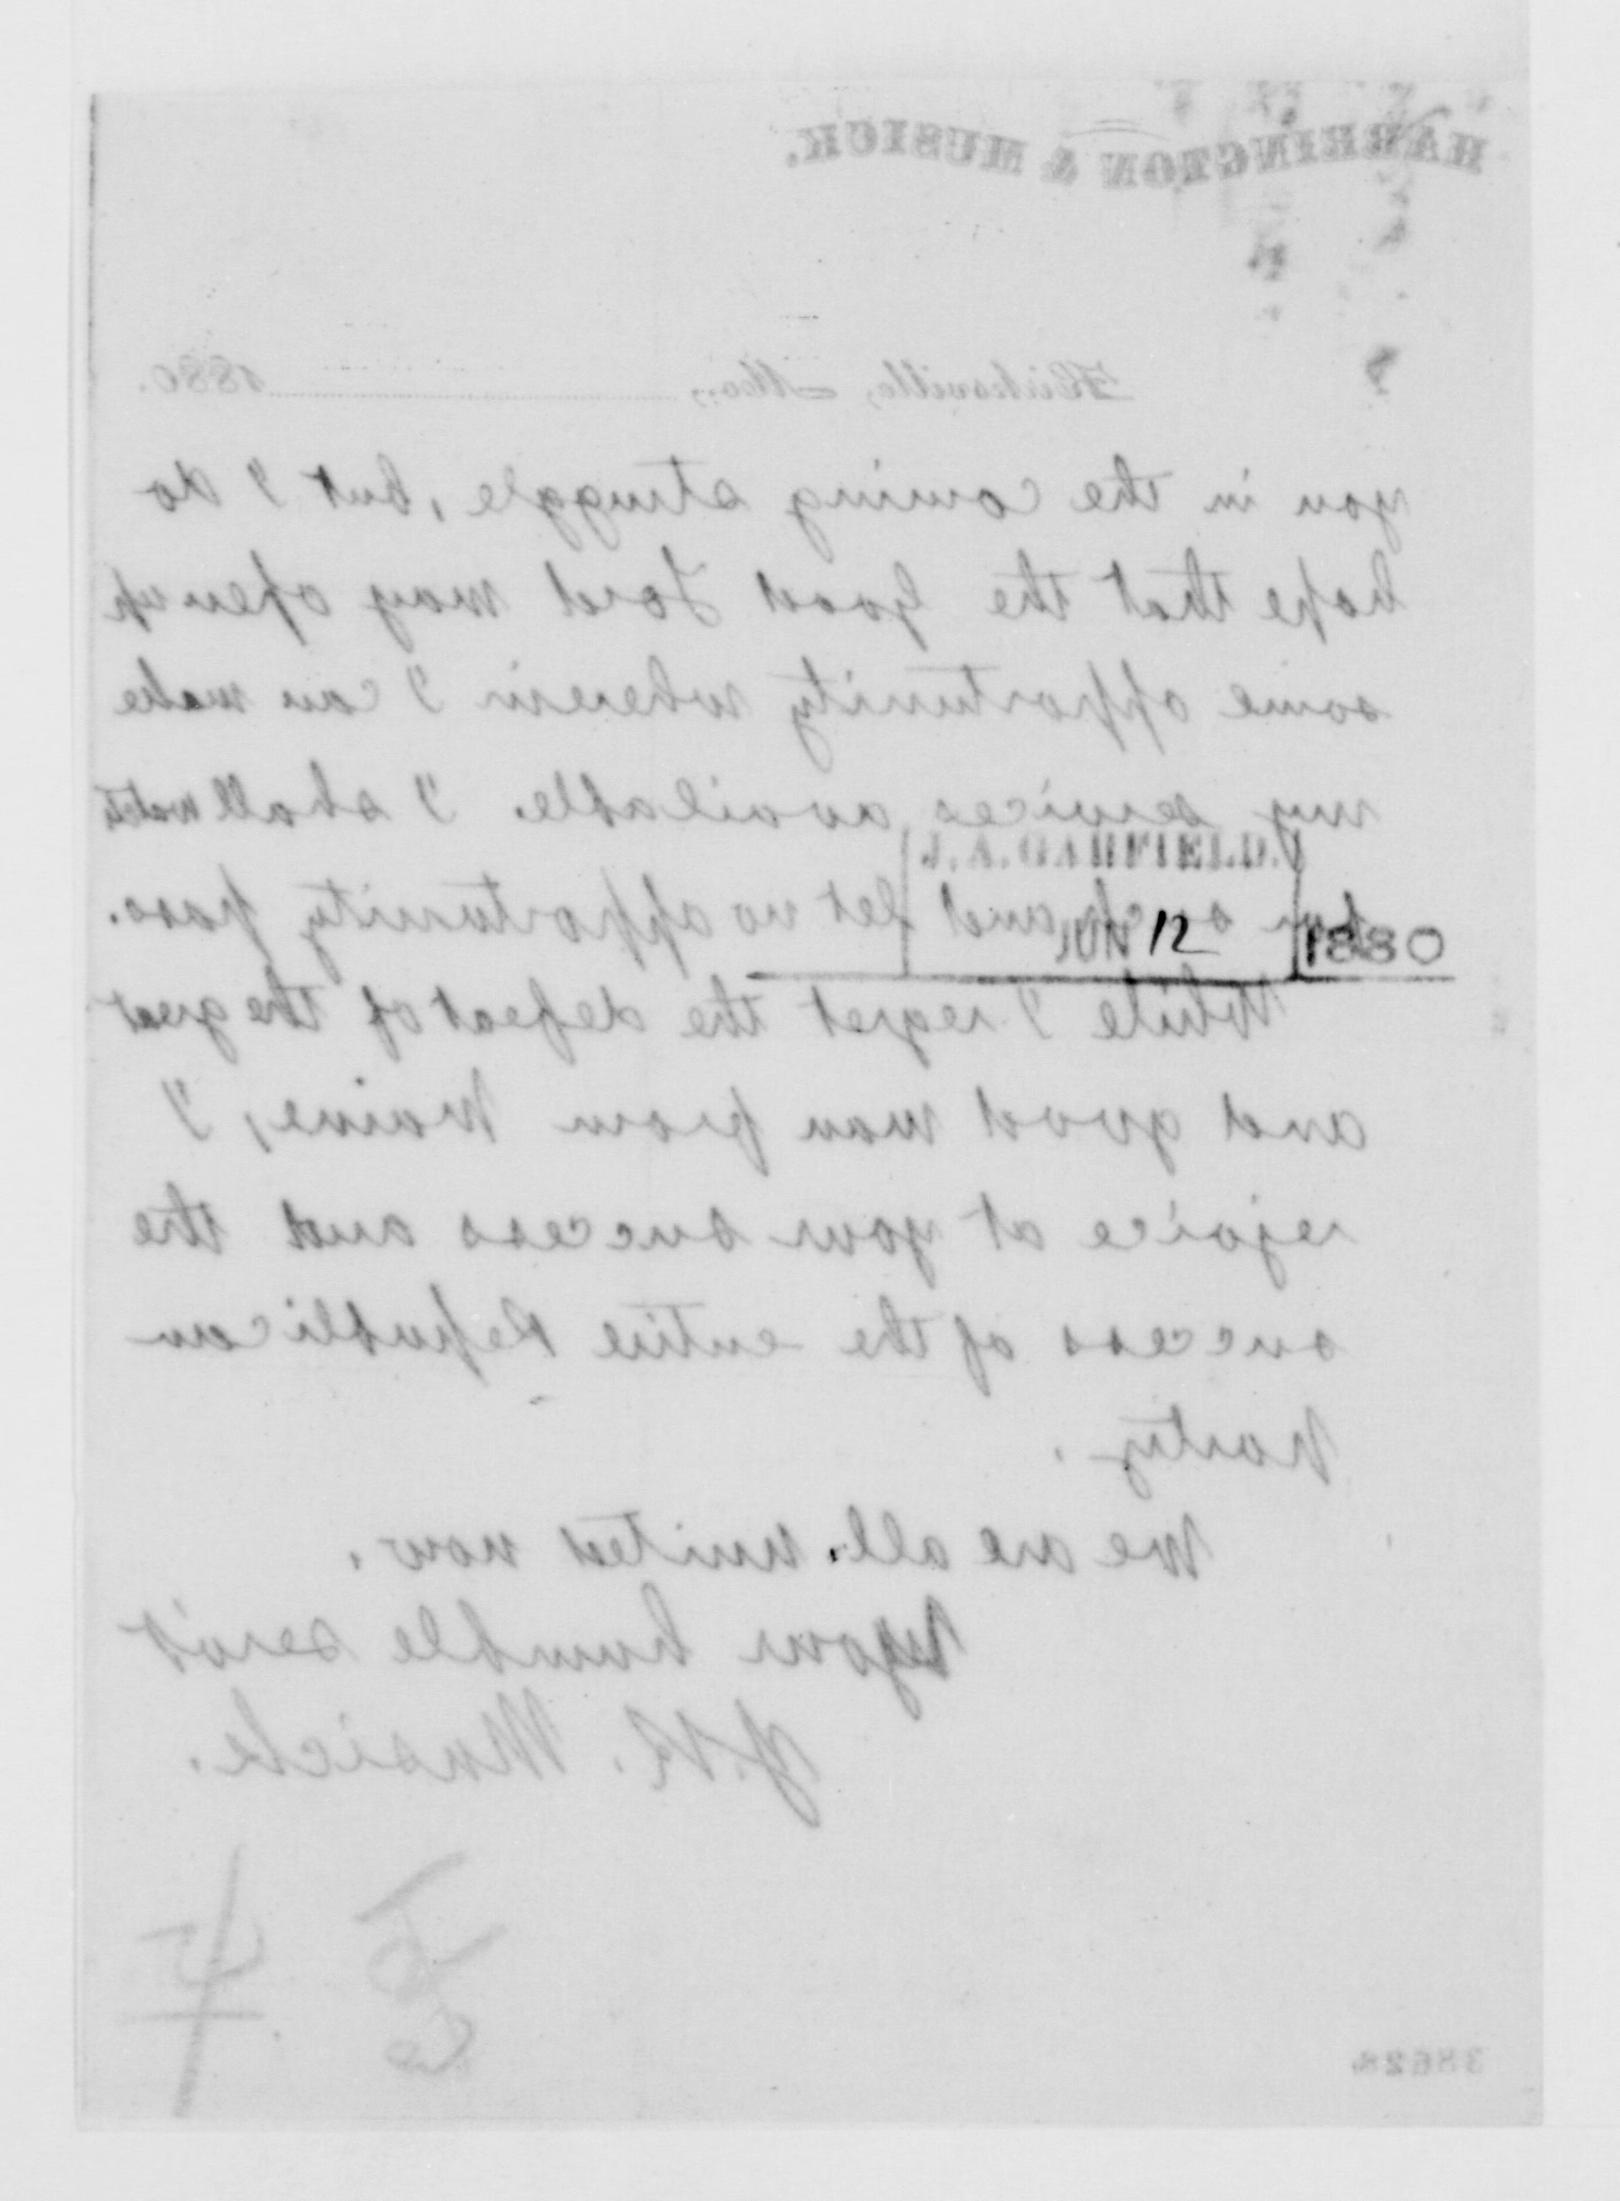 HARRINGTON & MUSICK.
Kirksville, Mo., 1880.
you in the coming struggle, but I do
hope that the Good Lord may open up
some opportunity wherein I can make
my services available. I shall watch
for such and let no opportunity pass.
J. A. GARFIELD.
JUN 12 1880
While I regret the defeat of the great
and good man from Maine, I
rejoice at your success and the
success of the entire Republican
Party.
We are all united now.
Your humble serv't
J. R. Musick.
4
38628